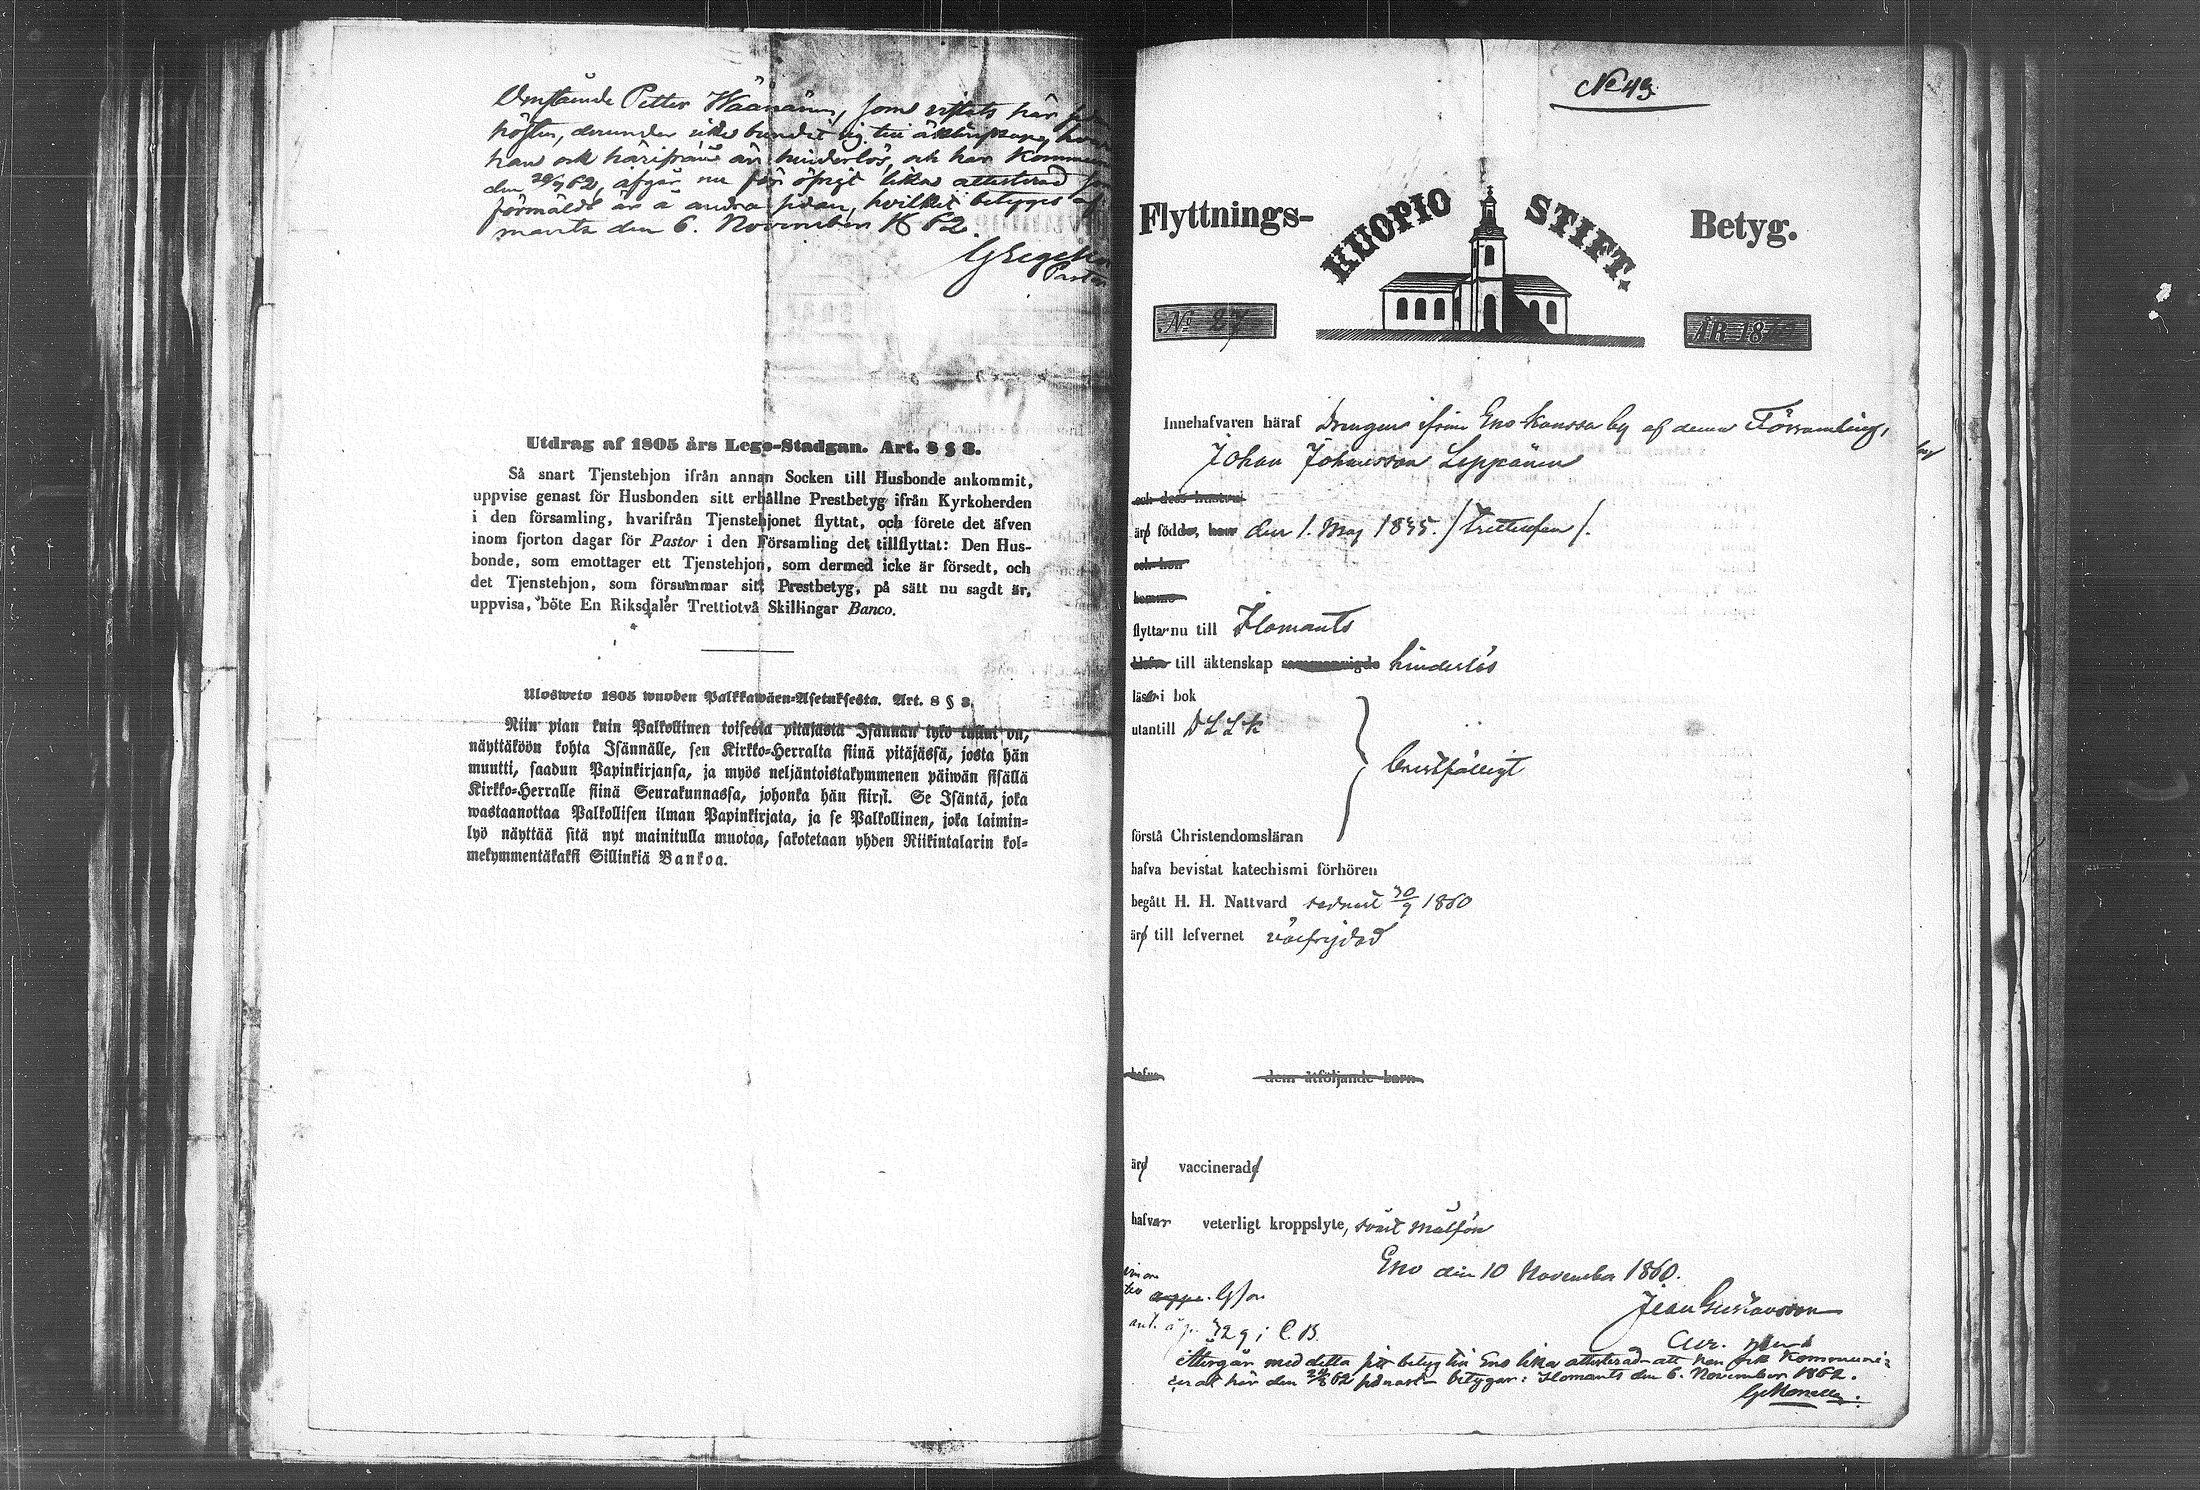 Omstående Petter Wäänänen, som vistats här
hösten, derunder icke bundit sig till äktenskap,
han ock härifrån är hinderlös, och har
den 28/9 62, afgår nu för öfrigt lika attesterad
förmäldt är å andra sidan, hvilket betygas
mants den 6. November 1862.
Pastor
Utdrag af 1805 års Lego-Stadgan. Art. 8 § 3.
Så snart Tjenstehjon ifrån annan Socken till Husbonde ankommit,
uppvise genast för Husbonden sitt erhållne Prestbetyg ifrån Kyrkoherden
i den församling, hvarifrån Tjenstehjonet flyttat, och förete det äfven
inom fjorton dagar för Pastor i den Församling det tillflyttat: Den Hus-
bonde, som emottager ett Tjenstehjon, som dermed icke är försedt, och
det Tjenstehjon, som försummar sitt Prestbetyg, på sätt nu sagdt är,
uppvisa, böte En Riksdaler Trettiotvå Skillingar Banco.
Ulosweto 1805 wuoden Palkkawäen-Asetuksesta. Art. 8 § 3.
Niin pian kuin Palkollinen toisesta pitäjästä Isännän tykö tullut on,
näyttäköön kohta Isännälle, sen Kirkko-Herralta siinä pitäjässä, josta hän
muutti, saadun Papinkirjansa, ja myös neljäntoistakymmenen päiwän sisällä
Kirkko-Herralle siinä Seurakunnassa, johonka hän siirsi. Se Isäntä, joka
wastaanottaa Palkollisen ilman Papinkirjata, ja se Palkollinen, joka laimin-
lyö näyttää sitä nyt mainitulla muotoa, sakotetaan yhden Riikintalarin kol-
mekymmentäkaksi Sillinkiä Bankoa.
No 43
Flyttnings- KUOPIO STIFT. Betyg.
No 87 ÅR 18
Innehafvaren häraf Drängen ifrån Eno Kanssa by af denna Församling,
Johan Johansson Leppänen
och dess hustru
äro födde, han den 1. Maj 1845. /trettiofem/.
och hon
komma
flyttar nu till Ilomants
till äktenskap hinderlös
läser i bok
utantill
Bristfälligt
förstå Christendomsläran
hafva bevistat katechismi förhören
begått H. H. Nattvard sednast 30/9 1860
äro till lefvernet väl frejdad
hafva dem åtföljande barn
äro vaccinerade
hafvar veterligt kroppslyte, svårt målför
Eno den 10 November 1860.
Jean Gustavsson
ant. å p. 729 i C. B.
Återgår med detta sitt betyg till Eno lika attesterad att han fick kommuni-
cerat här den 24/8 62 sednast betygar: Ilomants den 6. November 1862.